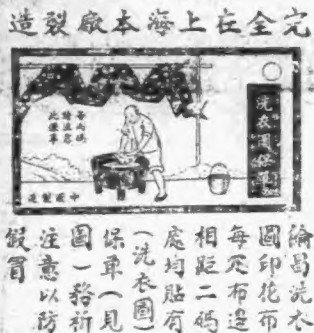 完全在上海本廠製造
洗衣圖保單
請注意
此保單
中國製造
綸昌洗衣
圖印花布
每疋布邊
相距二碼
處均貼有
(洗衣圖)
保單(見
圖)務祈
注意以防
假冒